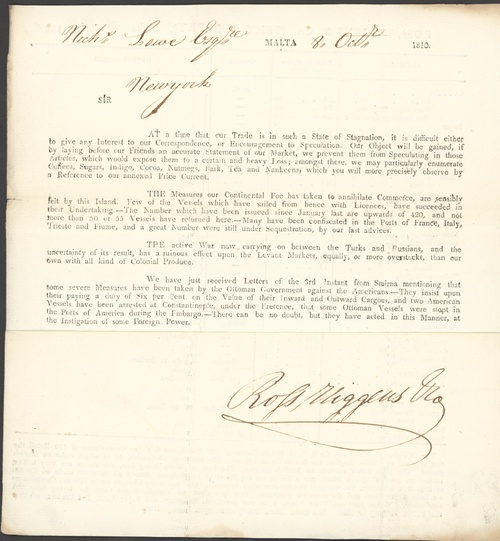 Nichs Lowe Esqre MALTA 8. Octr 1810.
Newyork
SIR
AT a time that our Trade is in such a State of Stagnation, it is difficult either
to give any Interest to our Correspondence, or Encouragement to Speculation. Our Object will be gained, if
by laying before our Friends an accurate Statement of our Market, we prevent them from Speculating in those
Articles, which would expose them to a certain and heavy Loss; amongst these, we may particularly enumerate
Coffees, Sugars, Indigo, Cocoa, Nutmegs, Bark, Tea and Nankeens; which you will more precisely observe by
a Reference to our annexed Price Current.
THE Measures our Continental Foe has taken to annihilate Commerce, are sensibly
felt by this Island. Few of the Vessels which have sailed from hence with Licences, have succeeded in
their Undertaking.—The Number which have been issued since January last are upwards of 420, and not
more than 50 or 55 Vessels have returned here.—Many have been confiscated in the Ports of France, Italy,
Trieste and Fiume, and a great Number were still under Sequestration, by our last advices.
THE active War now carrying on between the Turks and Russians, and the
uncertainty of its result, has a ruinous effect upon the Levant Markets, equally, or more overstockt, than our
own with all kind of Colonial Produce.
We have just received Letters of the 3rd Instant from Smirna mentioning that
some severe Measures have been taken by the Ottoman Government against the Americans.—They insist upon
their paying a duty of Six per Cent. on the Value of their Inward and Outward Cargoes, and two American
Vessels have been arrested at Constantinople, under the Pretence, that some Ottoman Vessels were stopt in
the Ports of America during the Embargo.—There can be no doubt, but they have acted in this Manner, at
the Instigation of some Foreign Power.
Ross, Higgens & Co